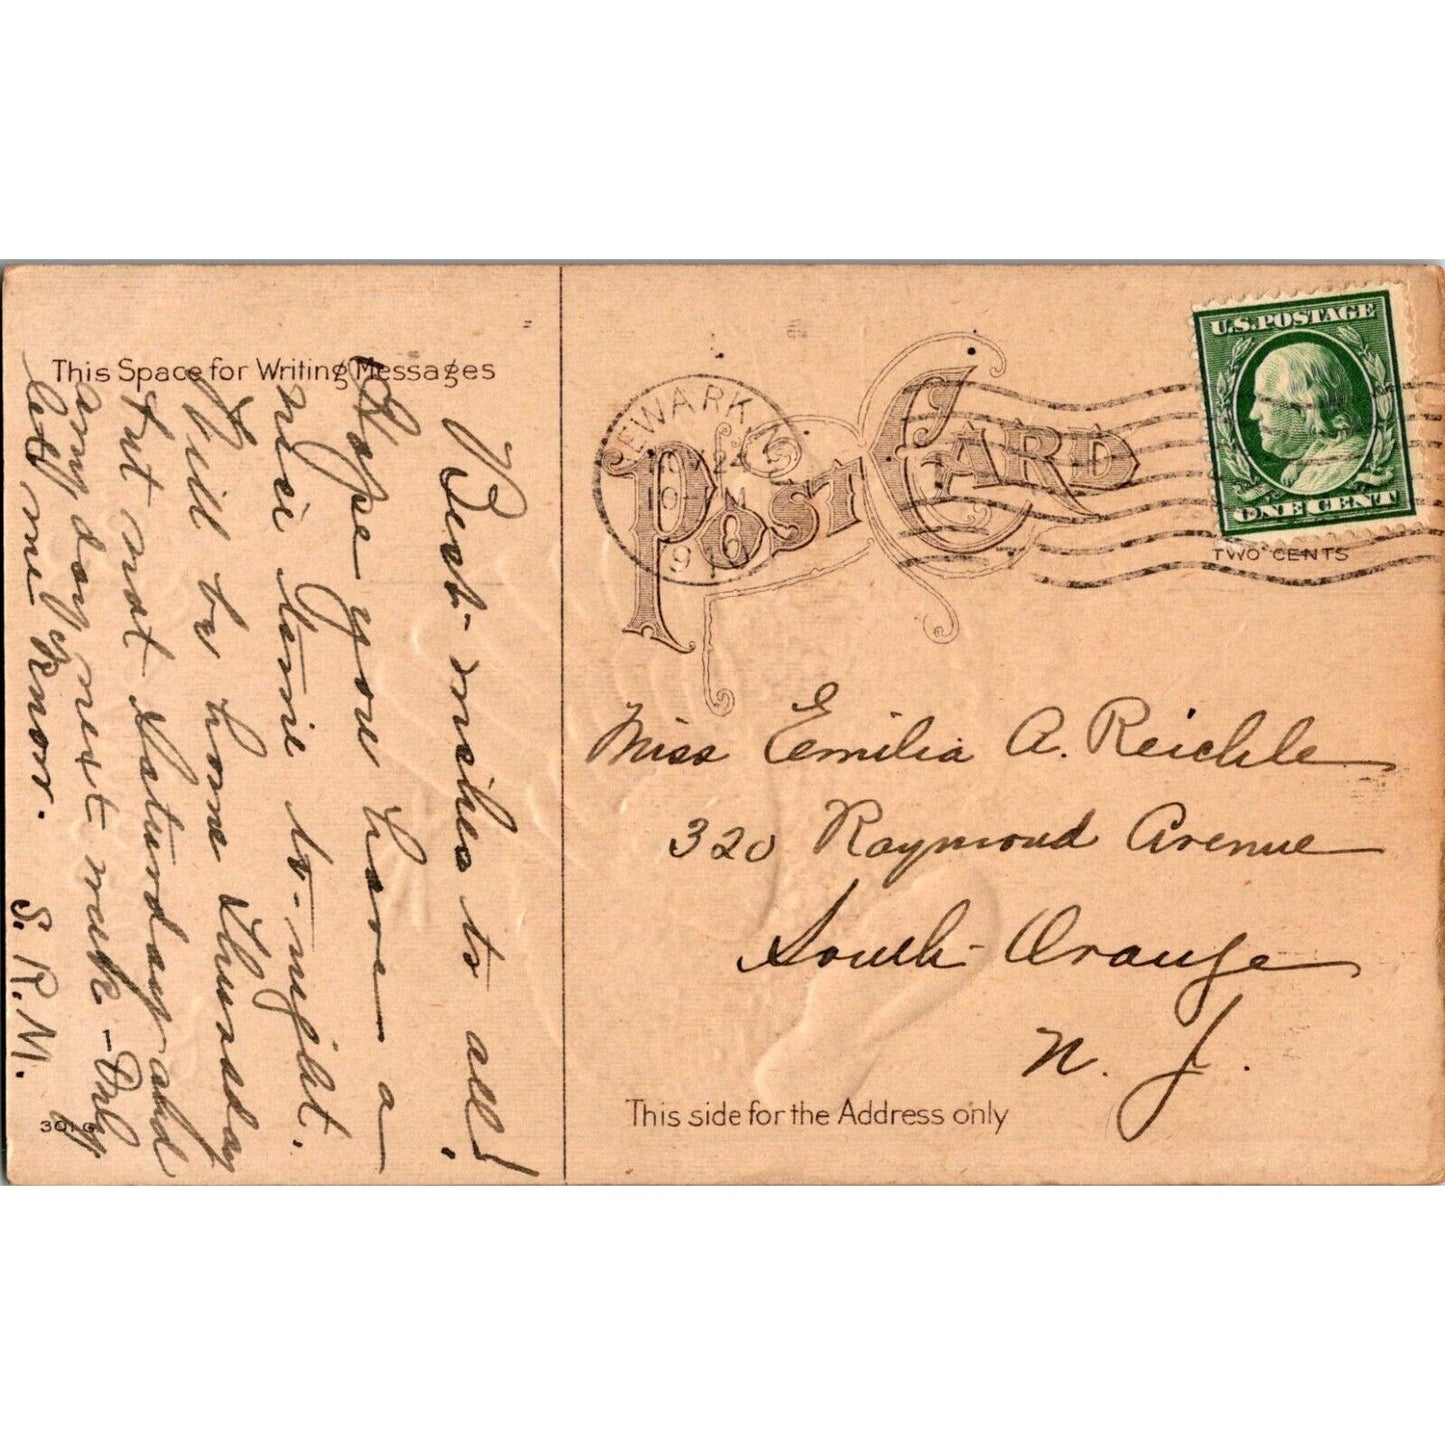 This Space for Writing Messages
Best-wishes to all!
Hope you have a
nice time to-night.
Will be home Thursday
but not Saturday and
any day next week - Only
let me know.
S. R. M.
301 G
NEWARK, N.
POST CARD
U.S. POSTAGE
ONE CENT
TWO CENTS
Miss Emilia A. Reichle
320 Raymond Avenue
South-Orange
N. J.
This side for the Address only